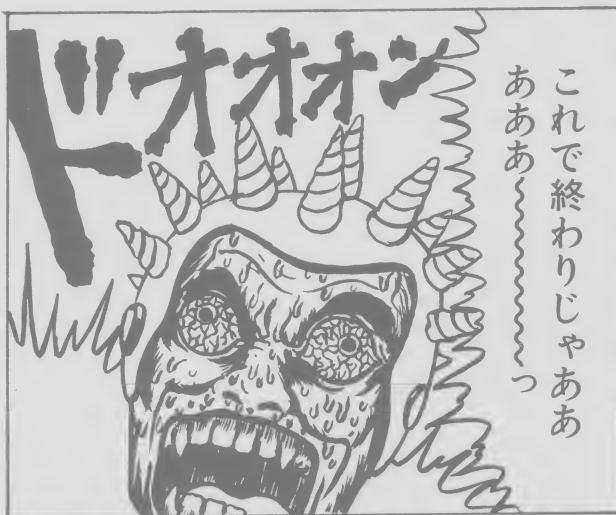 これで終わりじゃああ
あああ〜〜〜〜〜っ
ドオオオン